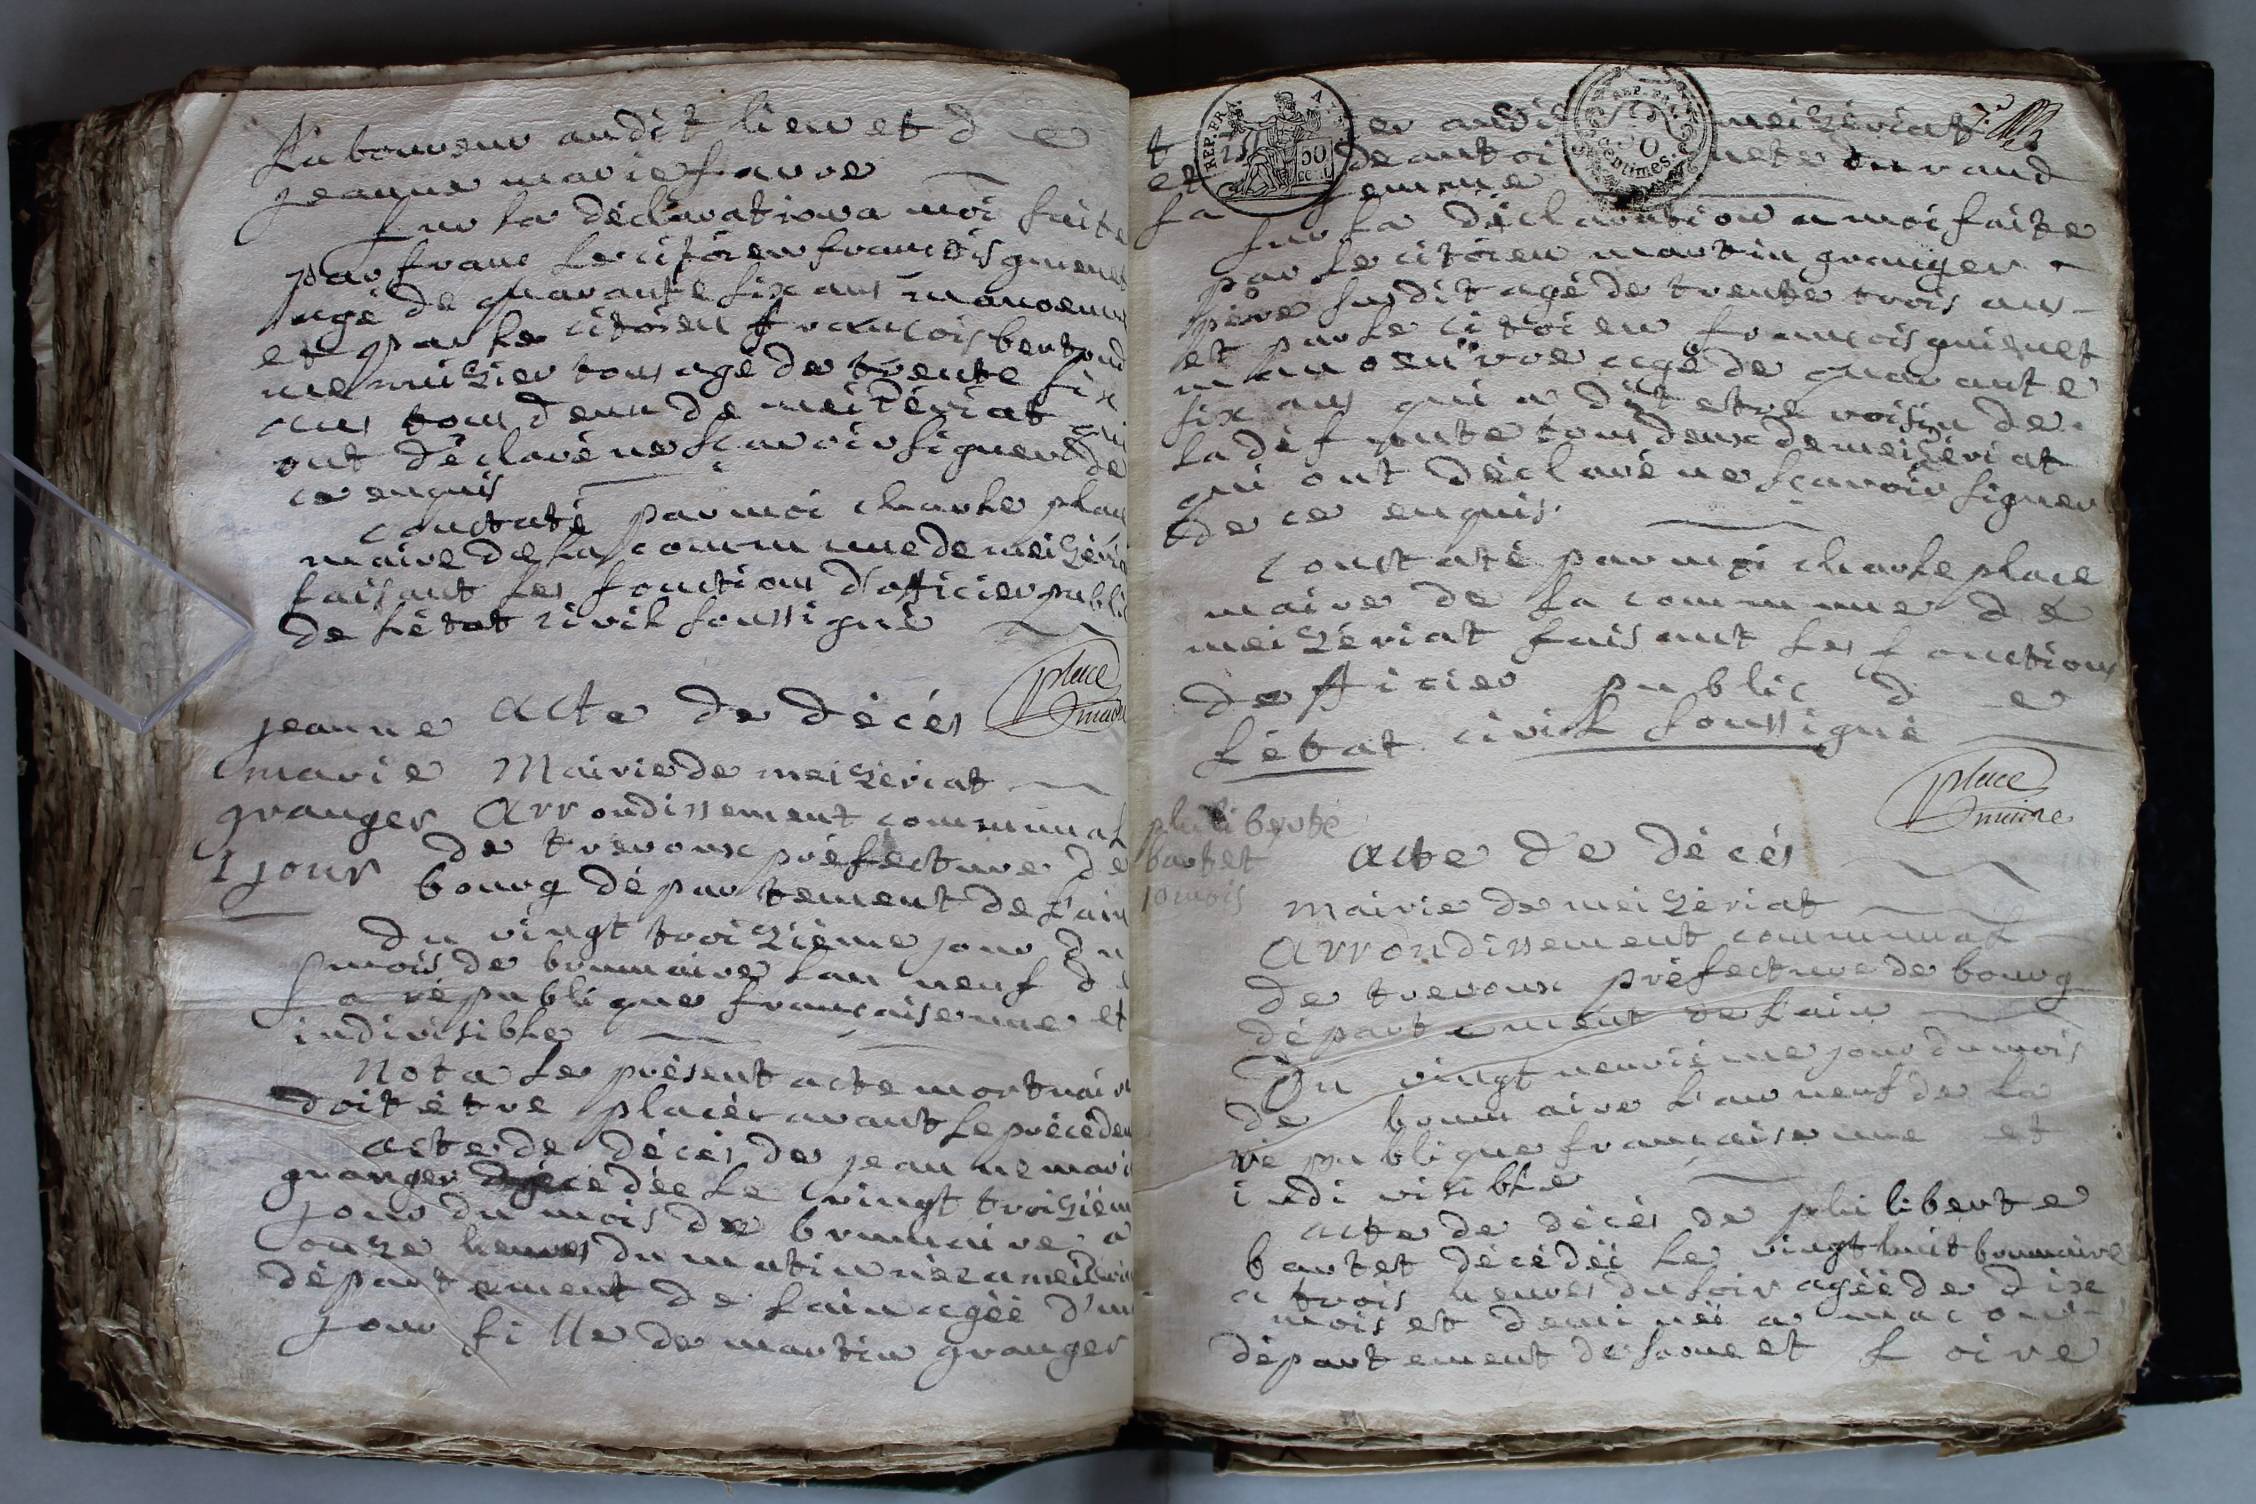 Laboureur audit lieu et de
jeanne marie favre
sur la déclaration a moi faite
par franc le citoien francois guenet
agé de quarante six ans manoeuv
et par le citoien francois bertond
menuizier tous agé de trente six
ans tous deux de meizériat qui
ont déclaré ne sçavoir signer de
ce enquis
constaté par moi charle place
maire de la commune de meizéria
faisant les fonctions d'officier publi
de l'état civil soussigné
place
maire
acte de décés
jeanne
marie
granger
1 jour
Mairie de meizériat
Arrondissement communal
de trevoux préfecture de
bourg département de l'ain
du vingt troizième jour du
mois de brumaire l'an neuf de
la république française une et
indivisible
Nota le présent acte mortuair
doit être placér avant le précéden
acte de décés de jeanne mari
granger décédée le vingt troizièm
jour du mois de brumaire a
onze heures du matin née a meizéria
département de l'ain agée d'un
jour fille de martin granger
REP. FRA.
50
cent.
REP. FRA.
50
centimes.
er audit meizériat
et de antoi nete durand
sa femme
sur la déclaration a moi faite
par le citoien martin granger
père susdit agé de trente trois ans
et par le citoien francois guenet
manoeuvre agé de quarante
six ans qui a dit etre voisin de
la défunte tous deux de meizériat
qui ont déclaré ne sçavoir signer
de ce enquis.
constaté par moi charle place
maire de la commune de
meizériat faisant les fonctions
d'officier public de
l'état civil soussigné
place
maire
philiberte
bartet
10 mois
acte de décés
Mairie de meizériat
Arrondissement communal
de trevoux préfecture de bourg
département de l'ain
Du vingt neuvième jour du mois
de brumaire l'an neuf de la
république française une et
indivisible
acte de décés de philiberte
bartet décédéé le vingt huit brumaire
a trois heures du soir agéé de dix
mois et demi néé a macon
département de saone et Loire